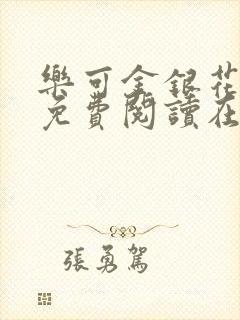 樂可金銀花
免費閱讀在
張勇駕